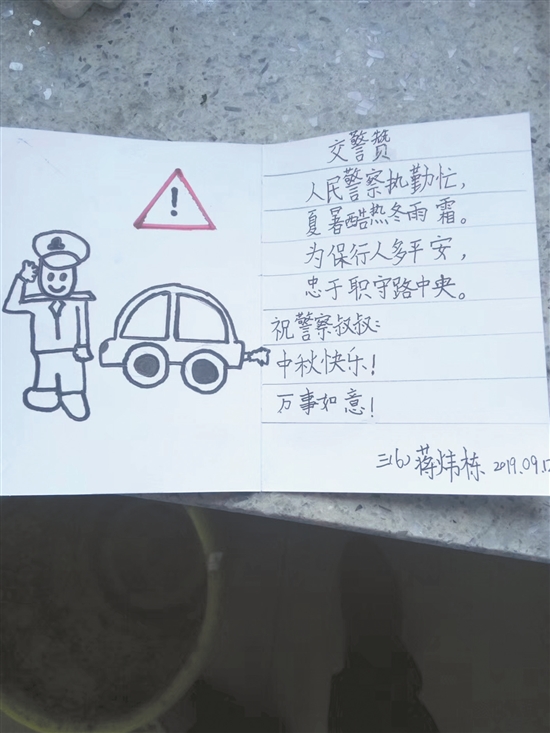 !
交警赞
人民警察执勤忙，
夏暑酷热冬雨霜。
为保行人多平安，
忠于职守路中央。
祝警察叔叔：
中秋快乐！
万事如意！
三(6) 蒋炜栋 2019.09.1